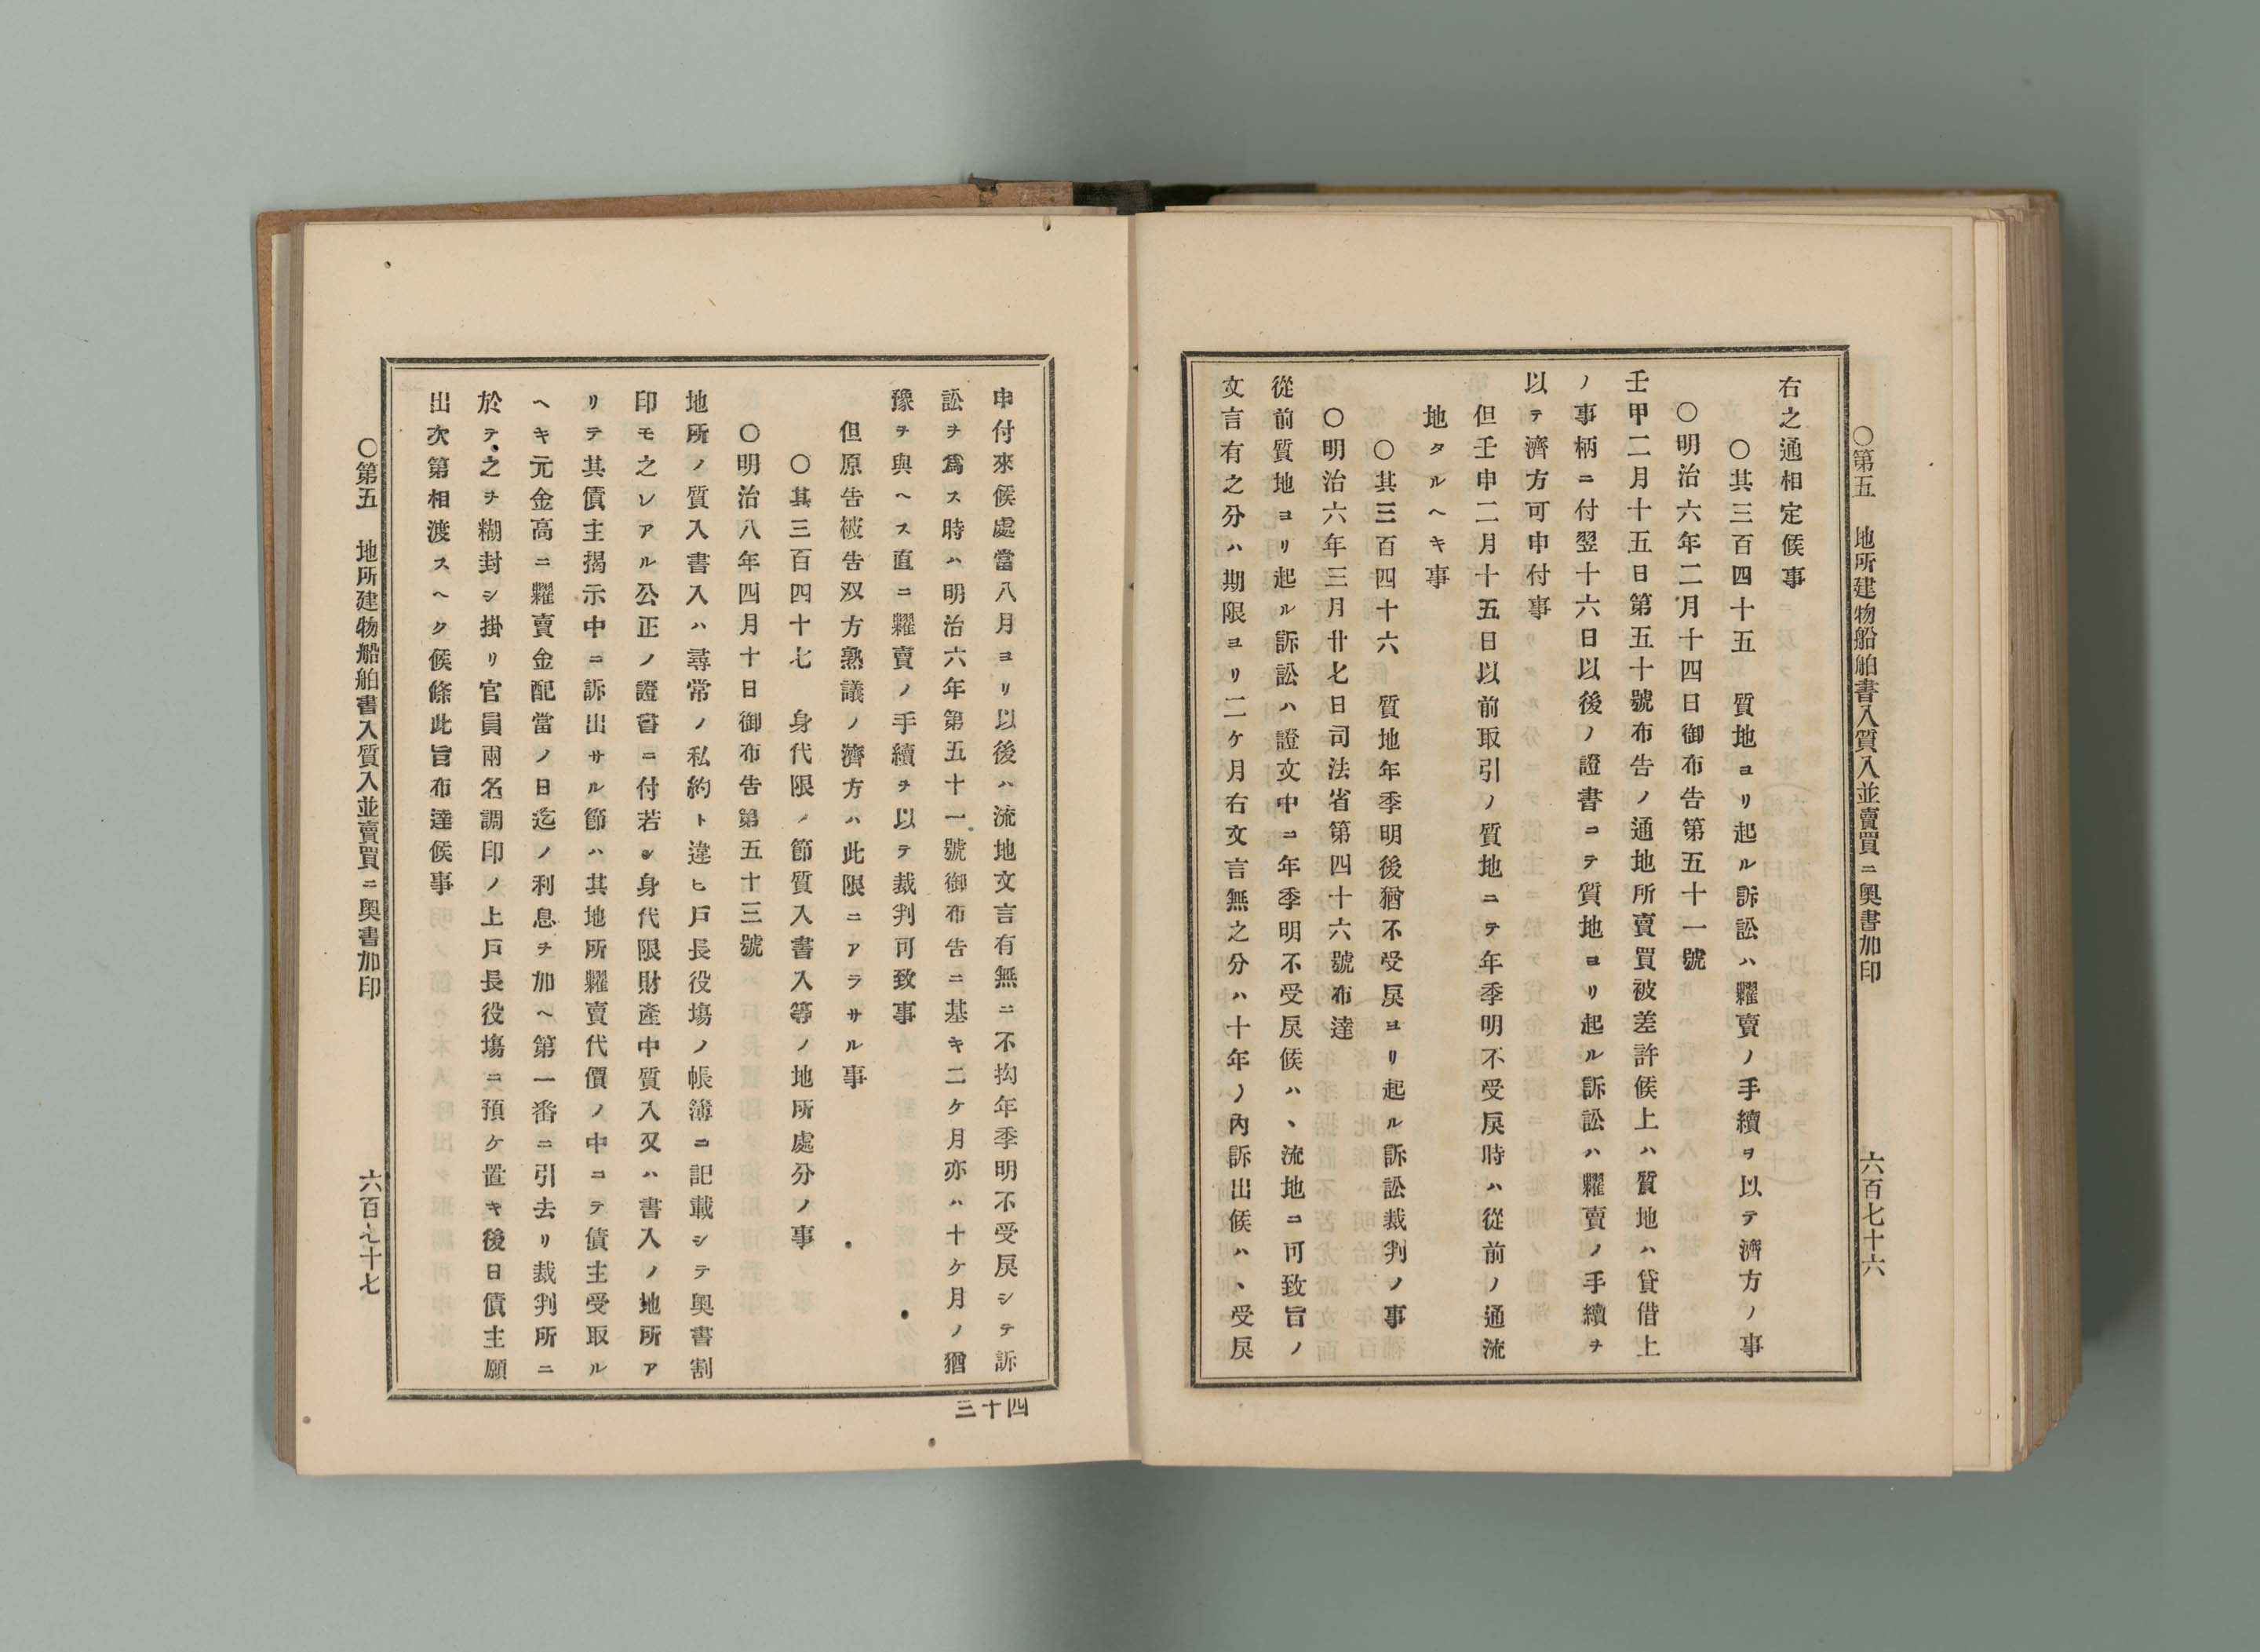 ○第五　地所建物船舶書入質入並賣買ニ奧書加印　六百七十六
右之通相定候事
○其三百四十五　質地ヨリ起ル訴訟ハ糶賣ノ手續ヲ以テ濟方ノ事
○明治六年二月十四日御布告第五十一號
壬甲二月十五日第五十號布告ノ通地所賣買被差許候上ハ質地ハ貸借上
ノ事柄ニ付翌十六日以後ノ證書ニテ質地ヨリ起ル訴訟ハ糶賣ノ手續ヲ
以テ濟方可申付事
但壬申二月十五日以前取引ノ質地ニテ年季明不受戻時ハ從前ノ通流
地タルヘキ事
○其三百四十六　質地年季明後猶不受戻ヨリ起ル訴訟裁判ノ事
○明治六年三月廿七日司法省第四十六號布達
從前質地ヨリ起ル訴訟ハ證文中ニ年季明不受戻候ハヽ流地ニ可致旨ノ
文言有之分ハ期限ヨリ二ケ月右文言無之分ハ十年ノ內訴出候ハヽ受戻
申付來候處當八月ヨリ以後ハ流地文言有無ニ不拘年季明不受戻シテ訴
訟ヲ爲ス時ハ明治六年第五十一號御布告ニ基キ二ケ月亦ハ十ケ月ノ猶
豫ヲ與ヘス直ニ糶賣ノ手續ヲ以テ裁判可致事
但原告被告双方熟議ノ濟方ハ此限ニアラサル事
○其三百四十七　身代限ノ節質入書入等ノ地所處分ノ事
○明治八年四月十日御布告第五十三號
地所ノ質入書入ハ尋常ノ私約ト違ヒ戸長役塲ノ帳簿ニ記載シテ奧書割
印モ之レアル公正ノ證書ニ付若シ身代限財產中質入又ハ書入ノ地所ア
リテ其債主揭示中ニ訴出サル節ハ其地所糶賣代價ノ中ニテ債主受取ル
ヘキ元金高ニ糶賣金配當ノ日迄ノ利息ヲ加ヘ第一番ニ引去リ裁判所ニ
於テ之ヲ糊封シ掛リ官員兩名調印ノ上戸長役塲ニ預ケ置キ後日債主願
出次第相渡スヘク候條此旨布達候事
○第五　地所建物船舶書入質入並賣買ニ奧書加印　六百七十七
四十三